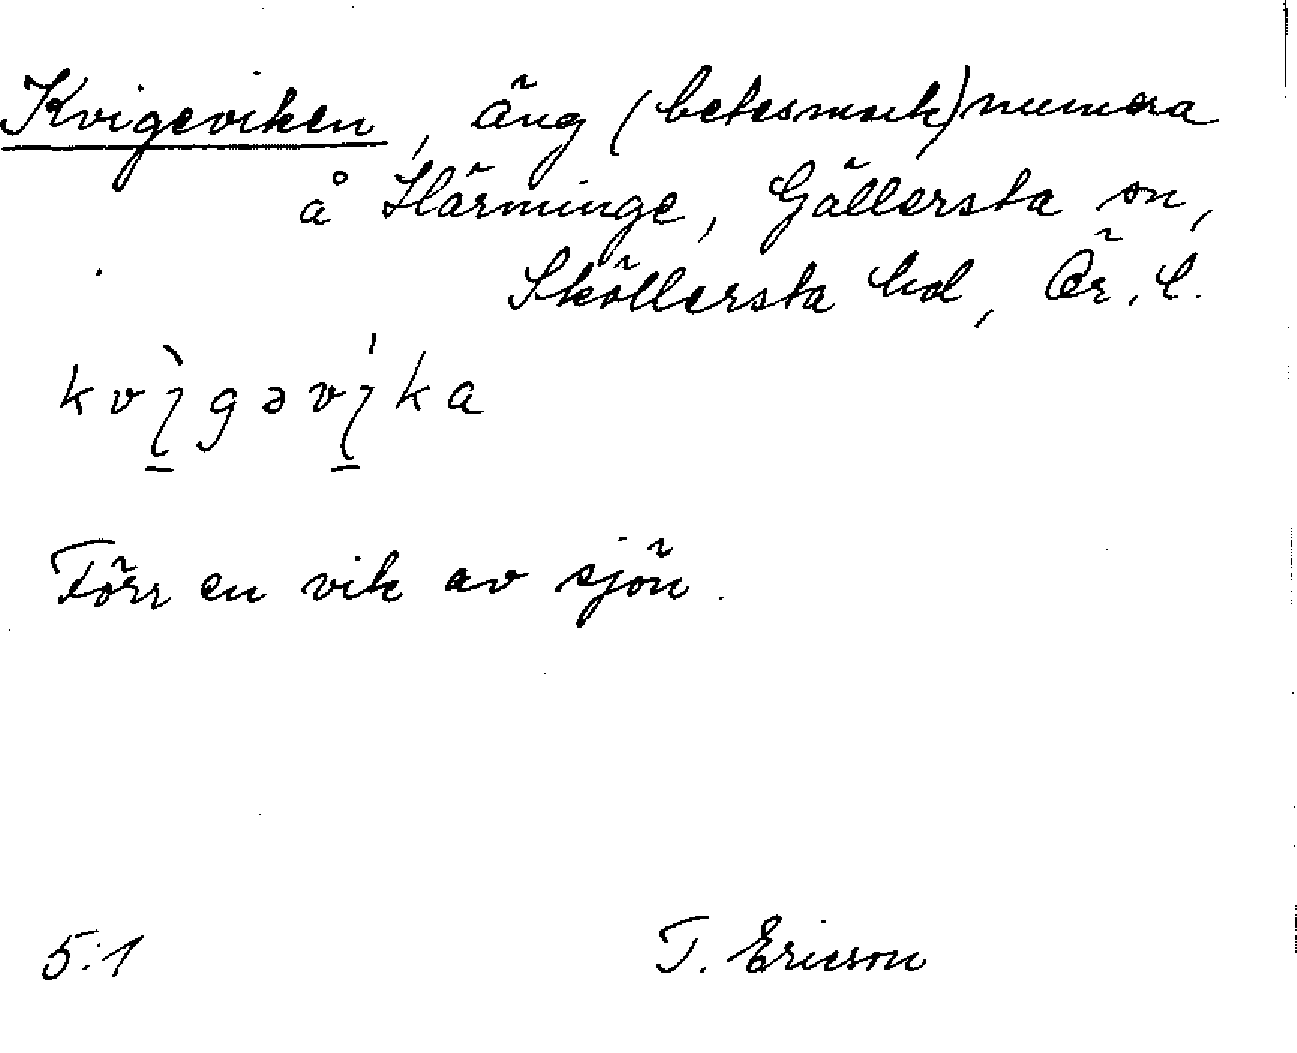 Kvigeviken, äng (betesmark) numera
å Härminge, Gällersta sn,
Sköllersta hd, Ör. l.
kvìgəvíka
Förr en vik av sjön.
5:1 T. Ericson